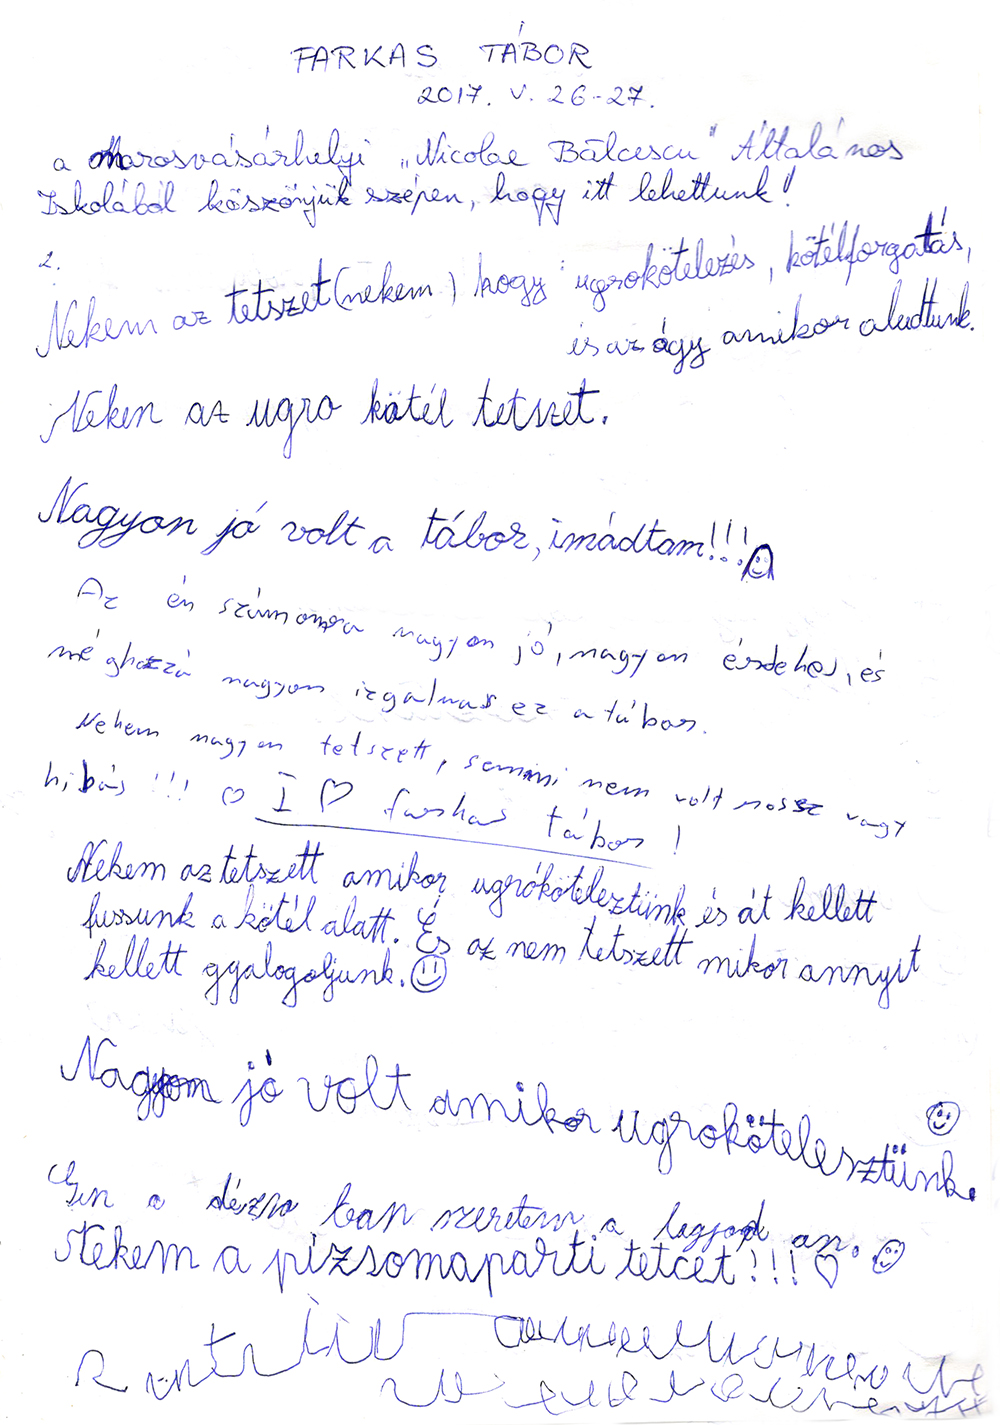 FARKAS TÁBOR
2017. V. 26-27.
a Marosvásárhelyi „Nicolae Bălcescu" Általános
Iskolából köszönjük szépen, hogy itt lehettunk!
2.
Nekem az tetszet (nekem) hogy ugrokötelezés, kötélforgatás,
és az ágy amikor aludtunk.
Neken az ugro kötél tetszet.
Nagyon jó volt a tábor, imádtam!!!
Az én számomra nagyon jó, nagyon érdekes, és
méghozzá nagyon izgalmas ez a tábor.
Nekem nagyon tetszett, semmi nem volt rossz vagy
hibás !!! ♡ I ♡ farkas tábor!
Nekem az tetszett amikor ugróköteleztünk és át kellett
fussunk a kötél alatt. És az nem tetszett mikor annyit
kellett gyalogoljunk.
Nagyon jó volt amikor ugrokötelesztünk.
a ban szeretem a an.
Nekem a pizsomaparti tetcet!!! ♡